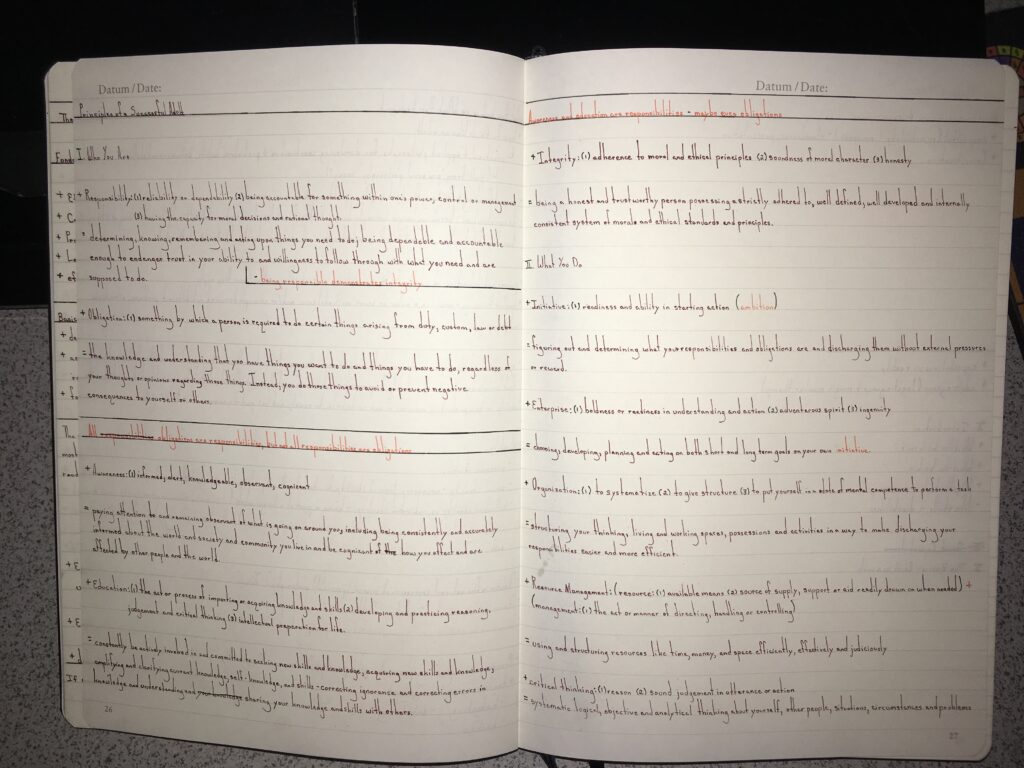 Datum / Date:
The
Principles of a Successful Adult
Fonda
I. Who You Are
+ Responsibility: (1) reliability or dependability (2) being accountable for something within one's power, control or management
(3) having the capacity for moral decisions and rational thought.
= determining, knowing, remembering and acting upon things you need to do; being dependable and accountable
enough to endenger trust in your ability to and willingness to follow through with what you need and are
supposed to do.
- being responsible demonstrates integrity
Basis
+ Obligation: (1) something by which a person is required to do certain things arising from duty, custom, law or debt
= the knowledge and understanding that you have things you want to do and things you have to do, regardless of
your thoughts or opinions regarding those things. Instead, you do those things to avoid or prevent negative
consequences to yourself or others.
All obligations are responsibilities, but not all responsibilities are obligations
+ Awareness: (1) informed, alert, knowledgeable, observant, cognizent
= paying attention to and remaining observant of what is going on around you, including being consistently and accurately
informed about the world and society and community you live in and be cognizant of how you affect and are
affected by other people and the world.
+ Education: (1) the act or process of imparting or acquiring knowledge and skills (2) developing and practicing reasoning,
judgement and critical thinking (3) intellectual preparation for life.
= constantly be actively involved in and committed to seeking new skills and knowledge, acquiring new skills and knowledge,
amplifying and clarifying current knowledge, self-knowledge, and skills - correcting ignorance and correcting errors in
knowledge and understanding and sharing your knowledge and skills with others.
26
Datum / Date:
Awareness and education are responsibilities - maybe even obligations
+ Integrity: (1) adherence to moral and ethical principles (2) soundness of moral character (3) honesty
= being a honest and trustworthy person possessing a strictly adhered to, well defined, well developed and internally
consistent system of morals and ethical standards and principles.
II What You Do
+ Initiative: (1) readiness and ability in starting action (ambition)
= figuring out and determining what your responsibilities and obligations are and discharging them without external pressures
or reward.
+ Enterprise: (1) boldness or readiness in understanding and action (2) adventerous spirit (3) ingenuity
= choosing, developing, planning and acting on both short and long term goals on your own initiative.
+ Organization: (1) to systematize (2) to give structure (3) to put yourself in a state of mental competence to perform a task
= structuring your thinking, living and working spaces, possessions and activities in a way to make discharging your
responsibilities easier and more efficient.
+ Resource Management: (resource: (1) available means (2) source of supply, support or aid readily drawn on when needed) +
(management: (1) the act or manner of directing, handling or controlling)
= using and structuring resources like time, money, and space efficiently, effectively and judiciously
+ critical thinking: (1) reason (2) sound judgement in utterance or action
= systematic logical, objective and analytical thinking about yourself, other people, situations, circumstances and problems
27